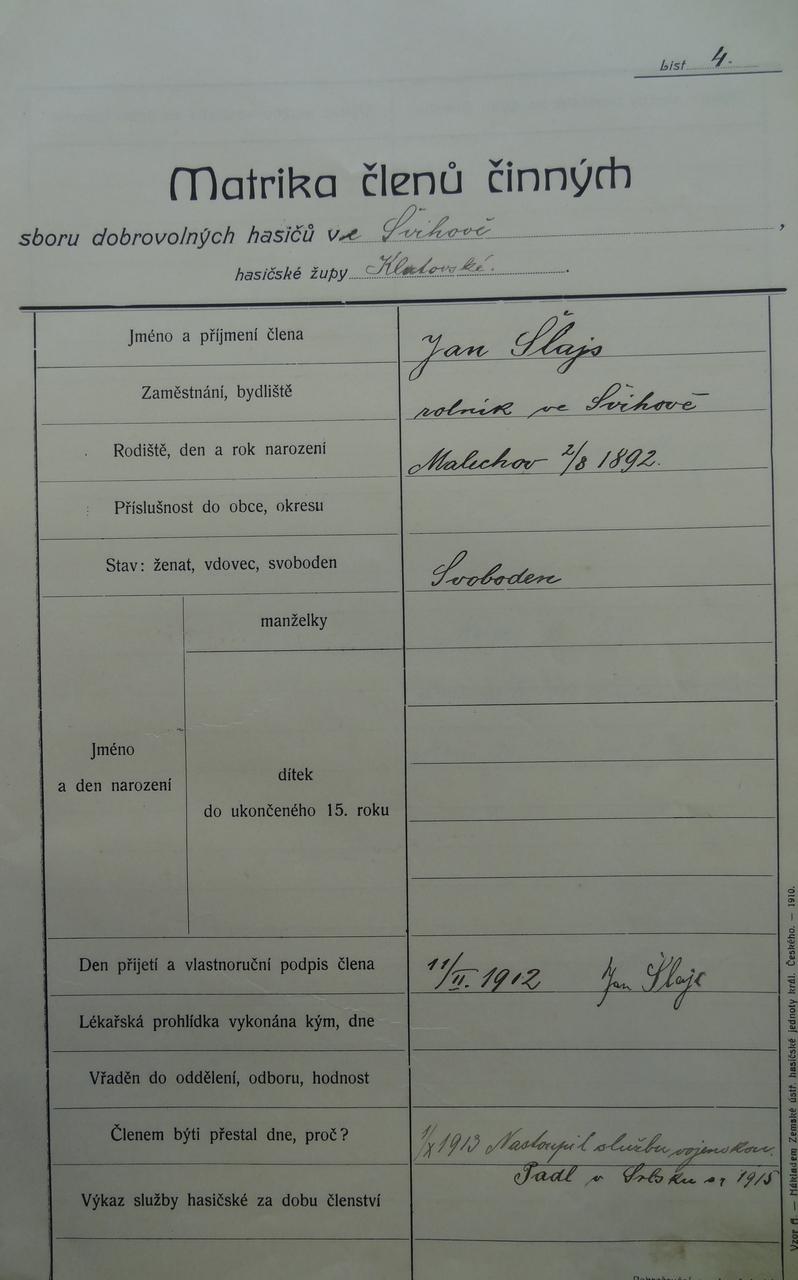 List 4.
Matrika členů činných
sboru dobrovolných hasičů ve Švihově,
hasičské župy Klatovské.
Jméno a příjmení člena Jan Šlajs
Zaměstnání, bydliště rolník ve Švihově
Rodiště, den a rok narození Malechov 2/8 1892.
Příslušnost do obce, okresu
Stav: ženat, vdovec, svoboden Svoboden
manželky
Jméno
a den narození
dítek
do ukončeného 15. roku
Den přijetí a vlastnoruční podpis člena 11/II. 1912 Jan Šlajs
Lékařská prohlídka vykonána kým, dne
Vřaděn do oddělení, odboru, hodnost
Členem býti přestal dne, proč? 1/X 1913 Nastoupil službu vojenskou.
Padl v Srbsku r. 1915
Výkaz služby hasičské za dobu členství
Vzor A. — Nákladem Zemské ústř. hasičské jednoty král. Českého. — 1910.